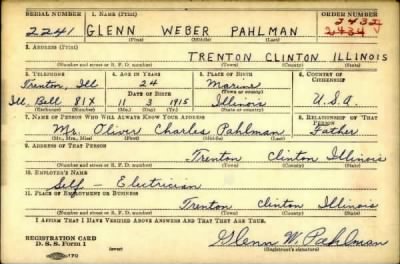 SERIAL NUMBER 1. NAME (Print) ORDER NUMBER
2241 GLENN WEBER PAHLMAN 2432
(First) (Middle) (Last) 2434
2. ADDRESS (Print)
TRENTON CLINTON ILLINOIS
(Number and street or R. F. D. number) (Town) (County) (State)
3. TELEPHONE 4. AGE IN YEARS 5. PLACE OF BIRTH 6. COUNTRY OF CITIZENSHIP
Trenton, Ill 24 Marine
DATE OF BIRTH (Town or county)
Ill. Bell 81X 11 3 1915 Illinois U.S.A.
(Exchange) (Number) (Mo.) (Day) (Yr.) (State or country)
7. NAME OF PERSON WHO WILL ALWAYS KNOW YOUR ADDRESS 8. RELATIONSHIP OF THAT PERSON
Mr. Oliver Charles Pahlman Father
(Mr., Mrs., Miss) (First) (Middle) (Last)
9. ADDRESS OF THAT PERSON
Trenton Clinton Illinois
(Number and street or R. F. D. number) (Town) (County) (State)
10. EMPLOYER'S NAME
Self - Electrician
11. PLACE OF EMPLOYMENT OR BUSINESS
Trenton Clinton Illinois
(Number and street or R. F. D. number) (Town) (County) (State)
I AFFIRM THAT I HAVE VERIFIED ABOVE ANSWERS AND THAT THEY ARE TRUE.
REGISTRATION CARD
D. S. S. Form 1 (over) Glenn W. Pahlman
(Registrant's signature)